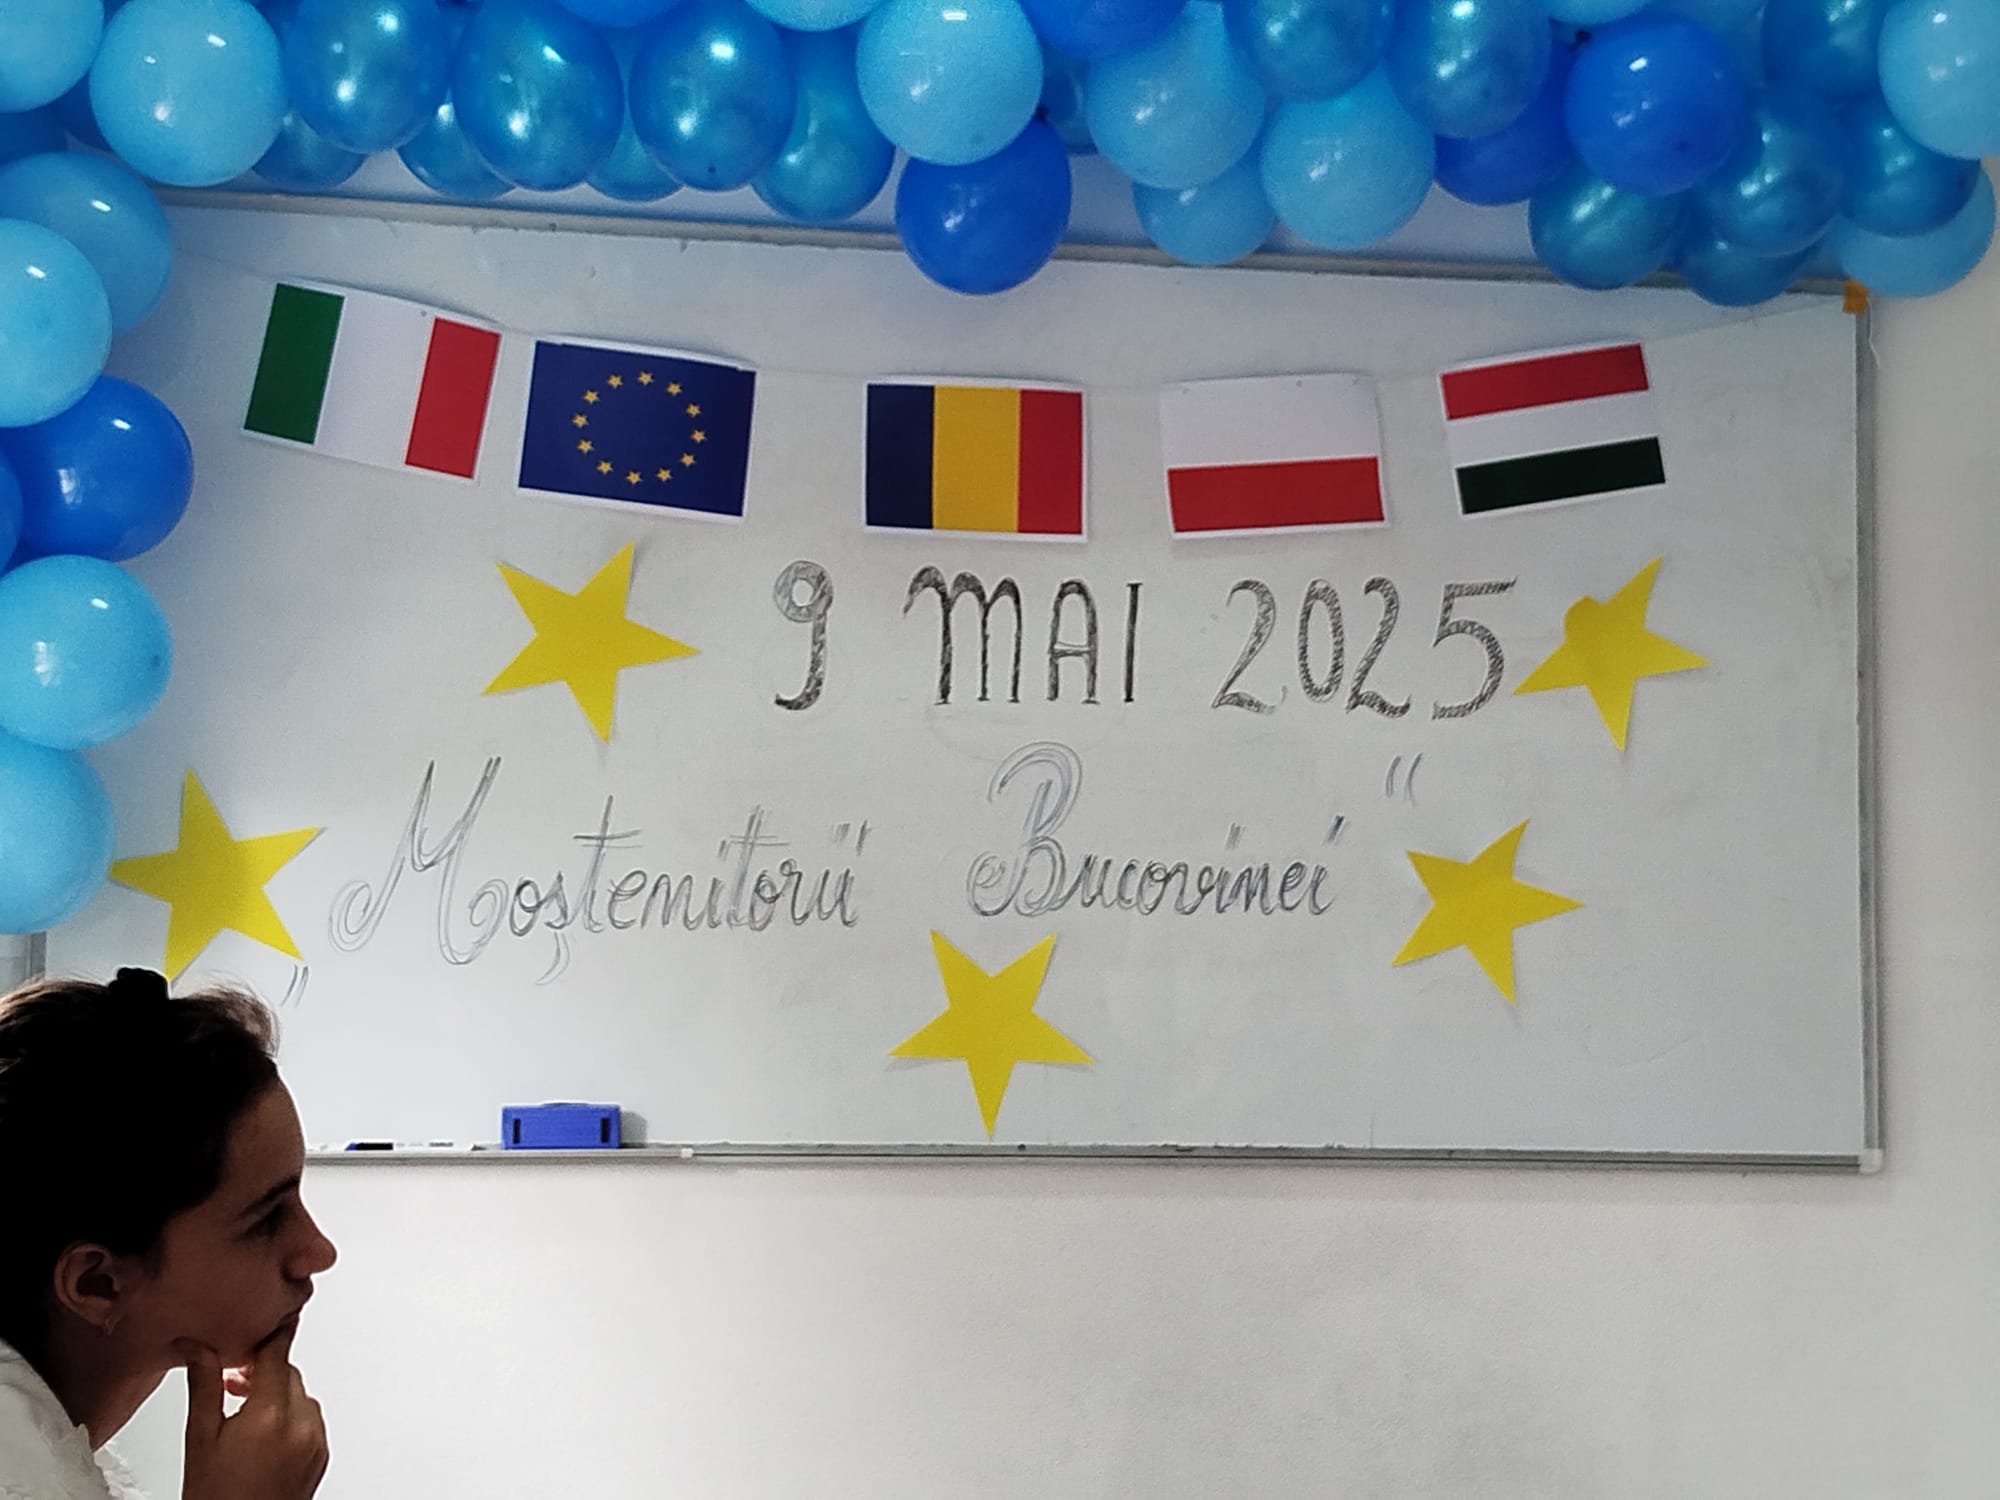 9 MAI 2025
„Moștenitorii Bucovinei“